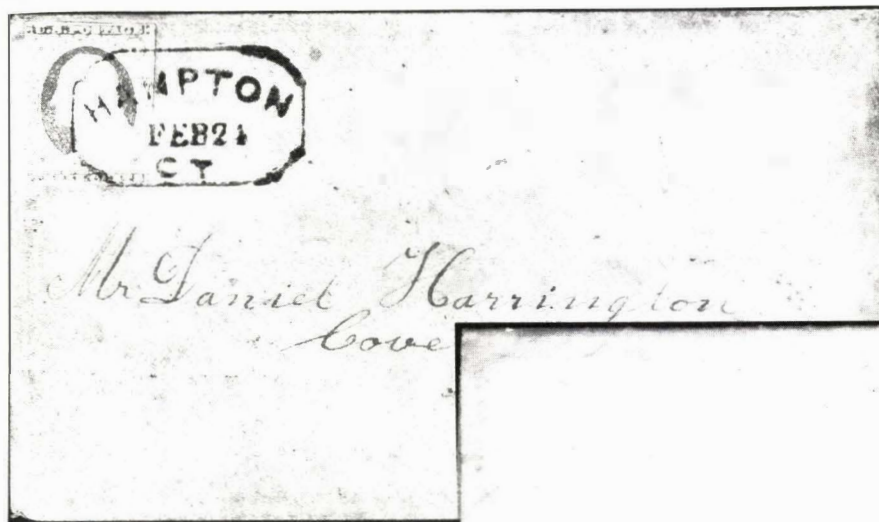 HAMPTON
FEB 24
CT
Mr Daniel Harrington
Cove